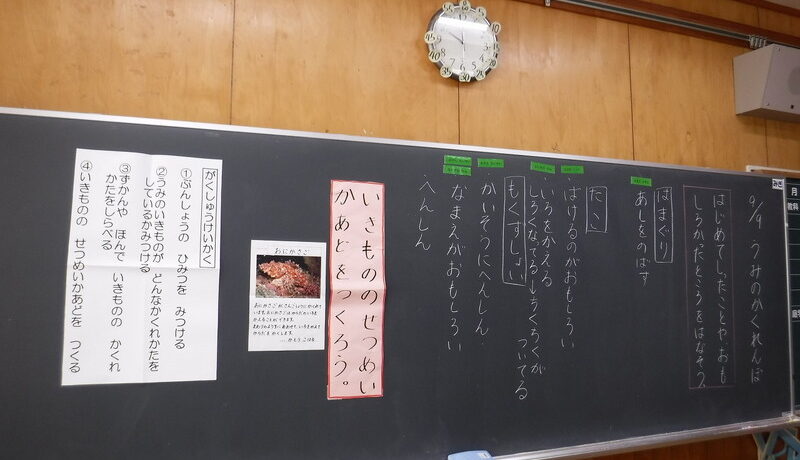 9/9 うみのかくれんぼ
はじめてしったことや、おも
しろかったところをはなそう。
はまぐり
あしをのばす
たこ
ばけるのがおもしろい
いろをかえる
しろくなってる
ついてる
もくずしょい
かいそうにへんしん
なまえがおもしろい
へんしん
いきもののせつめい
かあどをつくろう。
おにかさご
がくしゅうけいかく
①ぶんしょうの ひみつを みつける
②うみのいきものが どんなかくれかたを
しているかみつける
③ずかんや ほんで いきものの かくれ
かたをしらべる
④いきものの せつめいかあどを つくる
みぎ
月
教科